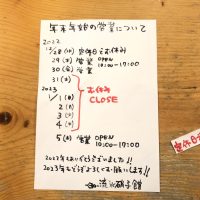 年末年始の営業について
2022
12/28(水) 定休日でお休み
29(木) 営業 OPEN 10:00-17:00
30(金) 営業
31(土)
2023
1/1(日)
2(月)
3(火)
4(水)
お休み
CLOSE
5(木) 営業 OPEN
10:00-17:00
2022年もありがとうございました!!
2023年もどうぞよろしくお願いします!!
定休日